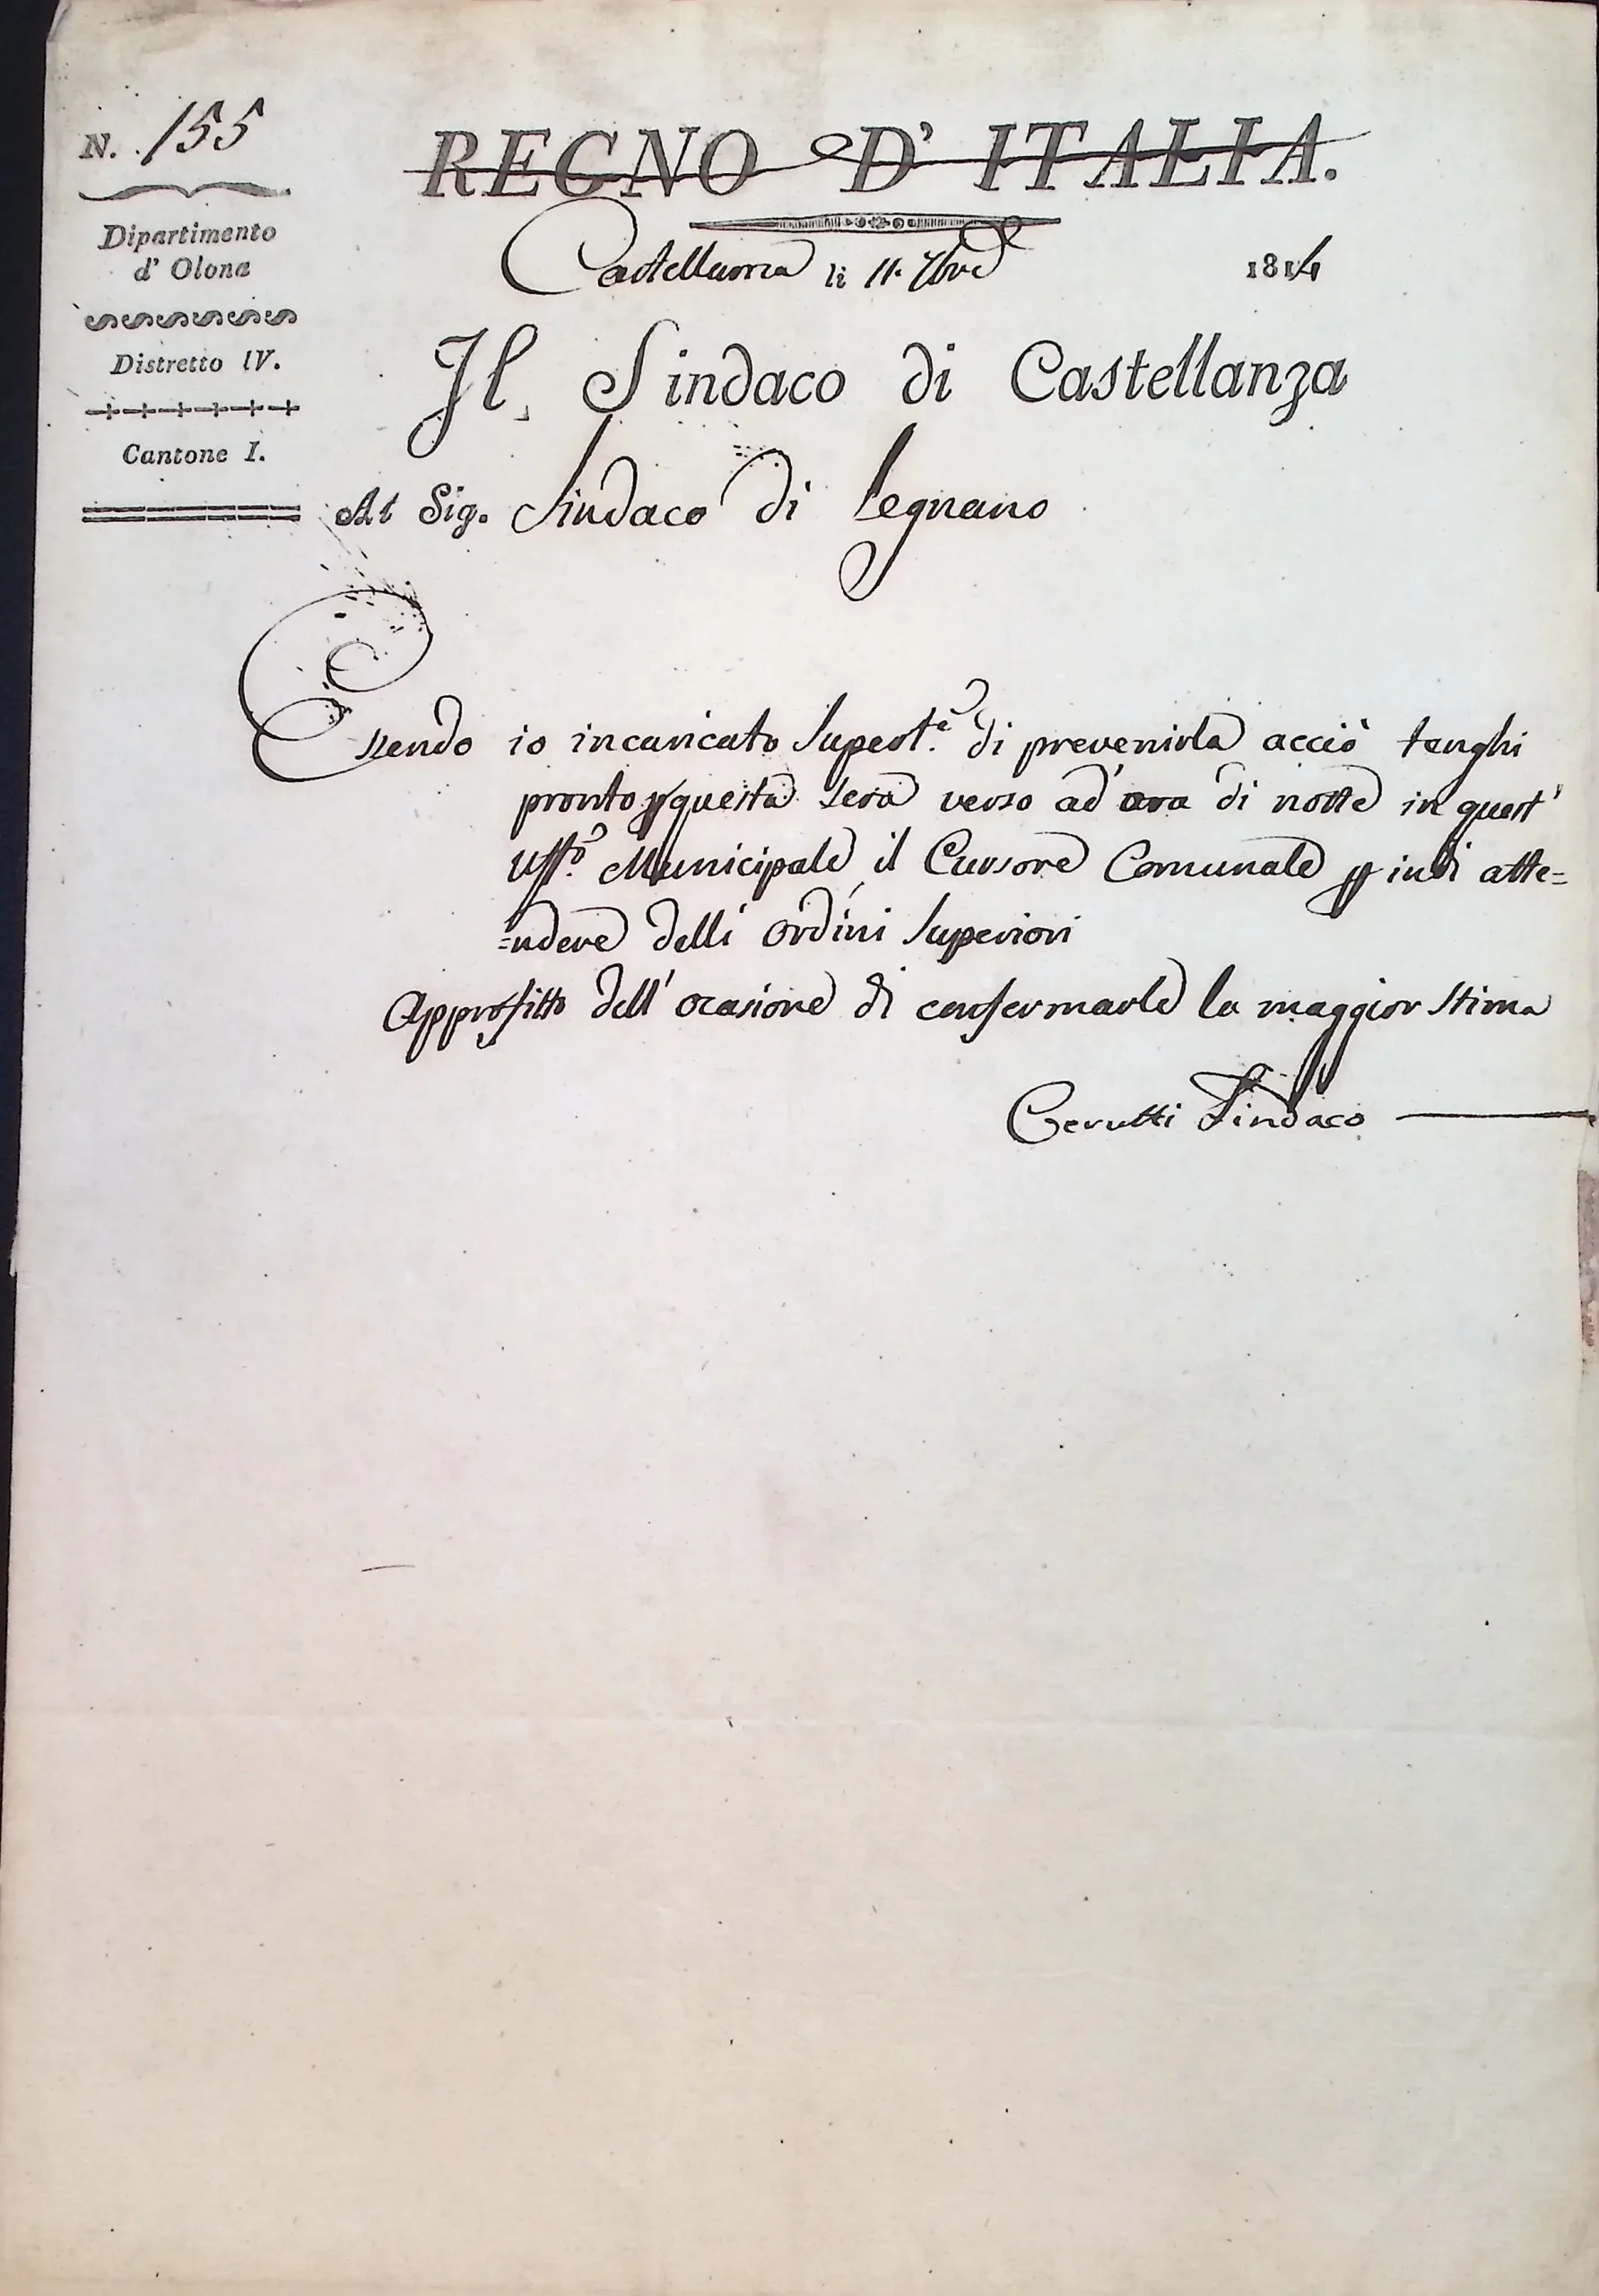 N. 155
Dipartimento
d' Olona
Distretto IV.
Cantone I.
REGNO D' ITALIA.
Castellanza li 11. 7bre 1814
Il Sindaco di Castellanza
Al Sig. Sindaco di Legnano
Essendo io incaricato Superte. di prevenirla acciò tenghi
pronto p questa sera verso ad' ora di notte in quest'
Uffo. Municipale il Cursore Comunale p indi atte=
=ndere delli ordini Superiori
Approfitto dell' ocasione di confermarle la maggior stima
Cerutti Sindaco